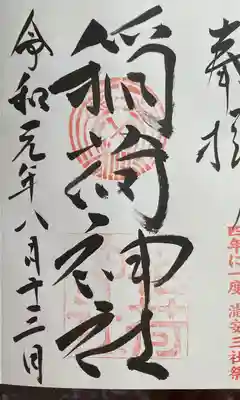 奉拝
四年に一度
三社祭
稲荷神社
令和元年八月十三日